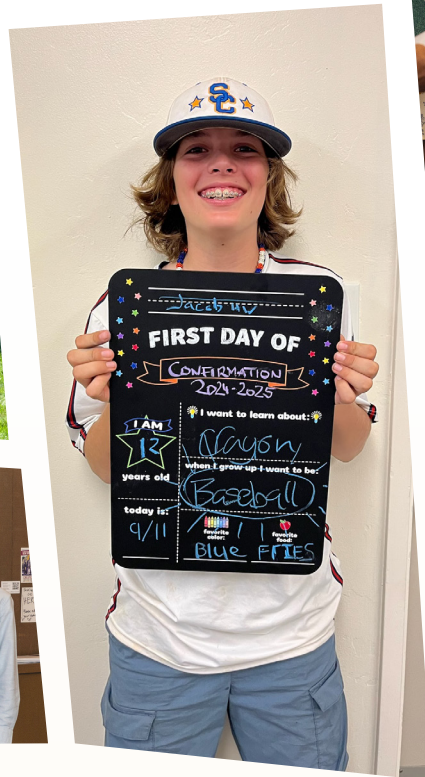 SC
Jacob
FIRST DAY OF
CONFIRMATION
2024-2025
I want to learn about:
I AM
12
years old
when I grow up I want to be:
Baseball
today is:
9/11
favorite color:
Blue
favorite food:
FRIES